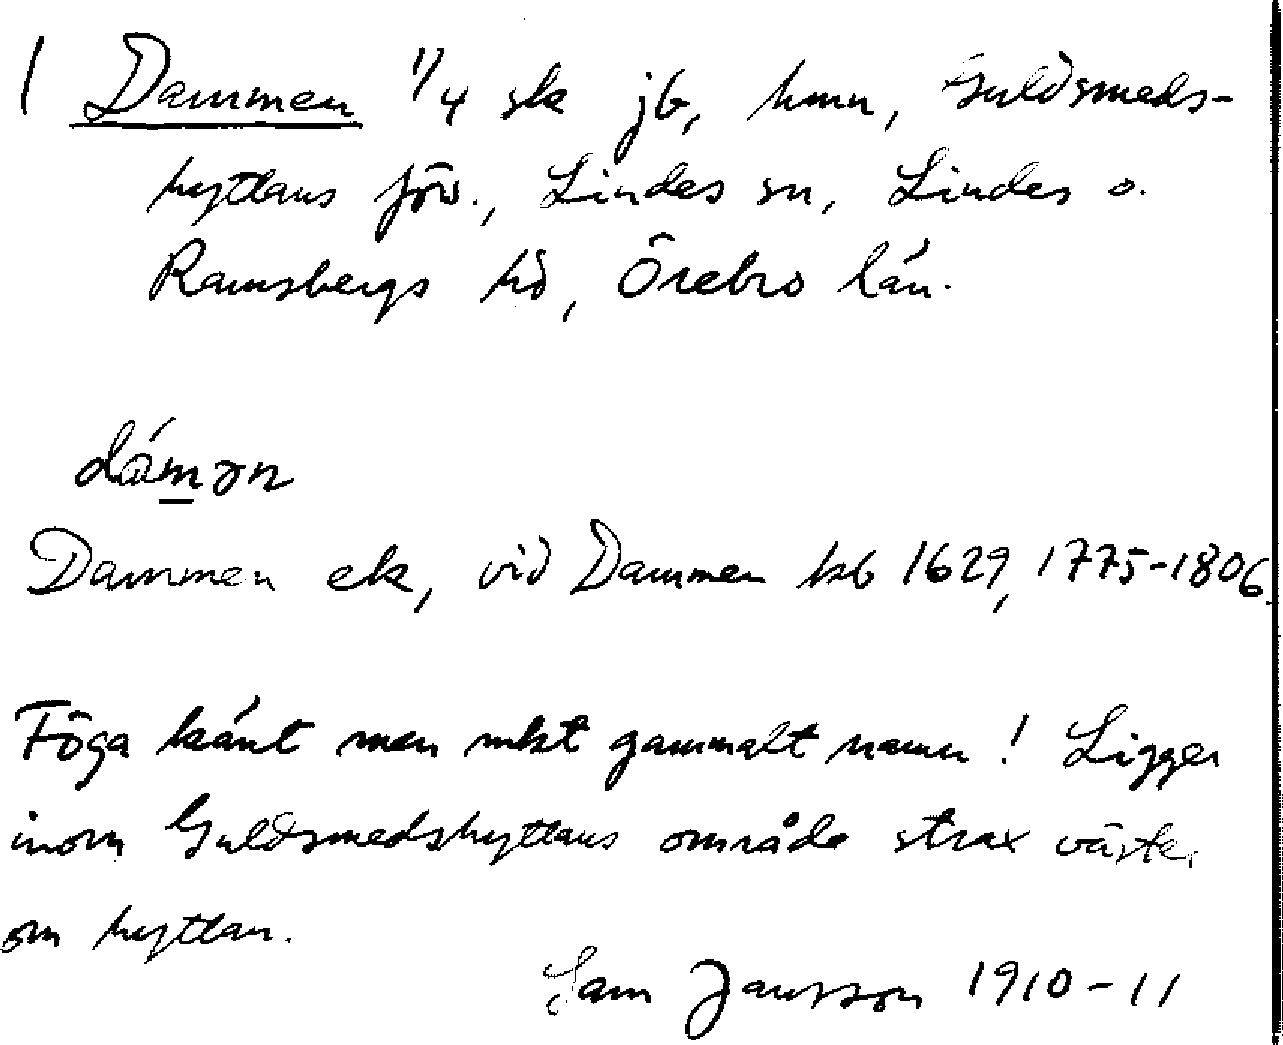 1 Dammen 1/4 sk jb, hmn, Guldsmeds-
hyttans förs., Lindes sn, Lindes o.
Ramsbergs hd, Örebro län.
dámən
Dammen ek, vid Dammen kb 1629, 1775-1806
Föga känt men mkt gammalt namn! Ligger
inom Guldsmedshyttans område strax väster
om hyttan.
Sam Jansson 1910-11